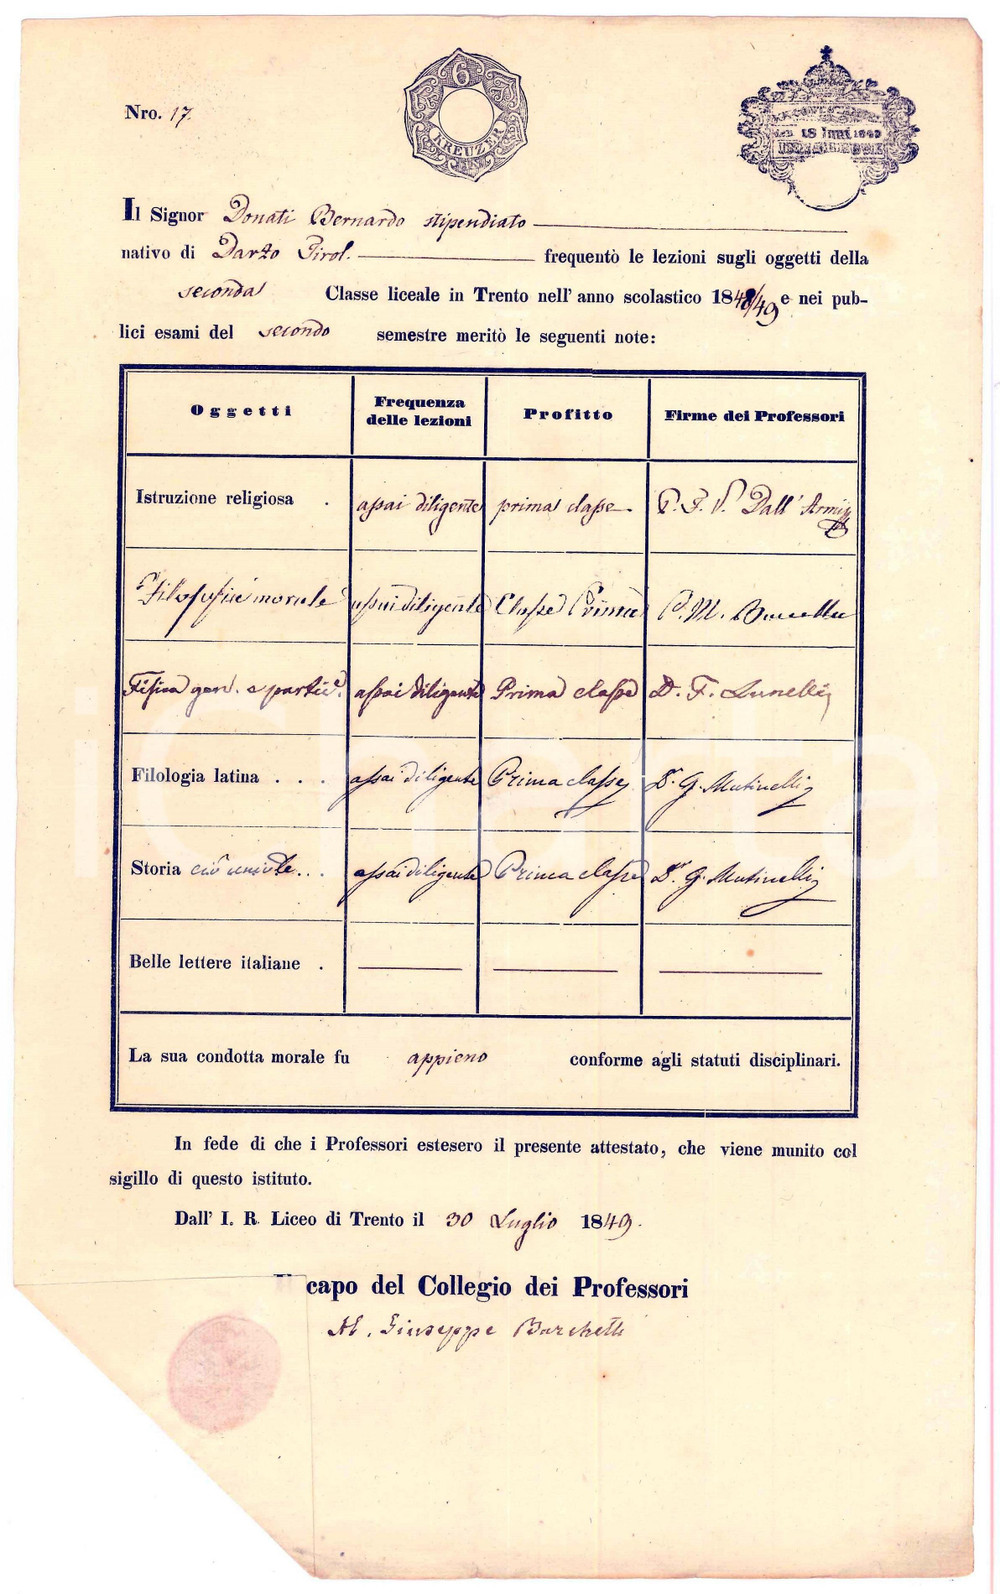 Nro. 17.
6
KREUZER
18 Juni 1849
Il Signor Donati Bernardo stipendiato
nativo di Darzo Tirol. frequentò le lezioni sugli oggetti della
seconda Classe liceale in Trento nell' anno scolastico 1848/49 e nei pub-
lici esami del secondo semestre meritò le seguenti note:
Oggetti Frequenza delle lezioni Profitto Firme dei Professori
Istruzione religiosa . assai diligente prima classe P. F. V. Dall' Armi
Filosofia morale assai diligente Classe Prima P. M.
Fisica gen. e partic. assai diligente Prima classe D. F. Lunelli
Filologia latina . . . assai diligente Prima classe Dr. G. Mutinelli
Storia . . assai diligente Prima classe Dr. G. Mutinelli
Belle lettere italiane .
La sua condotta morale fu appieno conforme agli statuti disciplinari.
In fede di che i Professori estesero il presente attestato, che viene munito col
sigillo di questo istituto.
Dall' I. R. Liceo di Trento il 30 Luglio 1849.
capo del Collegio dei Professori
Giuseppe Barchetti